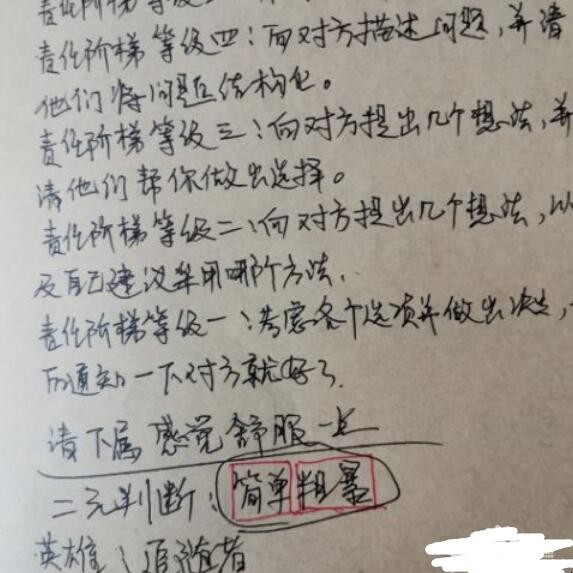 责任阶梯等级
责任阶梯等级四：向对方描述问题，并请
他们将问题结构化。
责任阶梯等级三：向对方提出几个想法，并
请他们帮你做出选择。
责任阶梯等级二：向对方提出几个想法，以
及自己建议采用哪个方法。
责任阶梯等级一：考虑各个选项并做出决定，
后通知一下对方就好了。
请下属感觉舒服一点
二元判断：简单粗暴
英雄：追随者